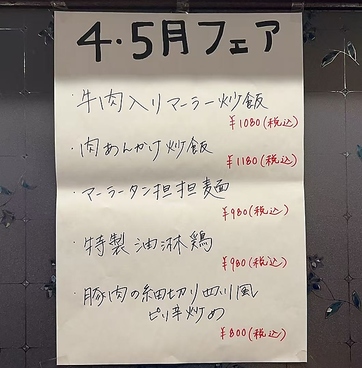 4・5月フェア
・牛肉入りマーラー炒飯
¥1080(税込)
・肉あんかけ炒飯
¥1180(税込)
・マーラータン担担麺
¥980(税込)
・特製油淋鶏
¥980(税込)
・豚肉の細切り四川風
ピリ辛炒め
¥800(税込)